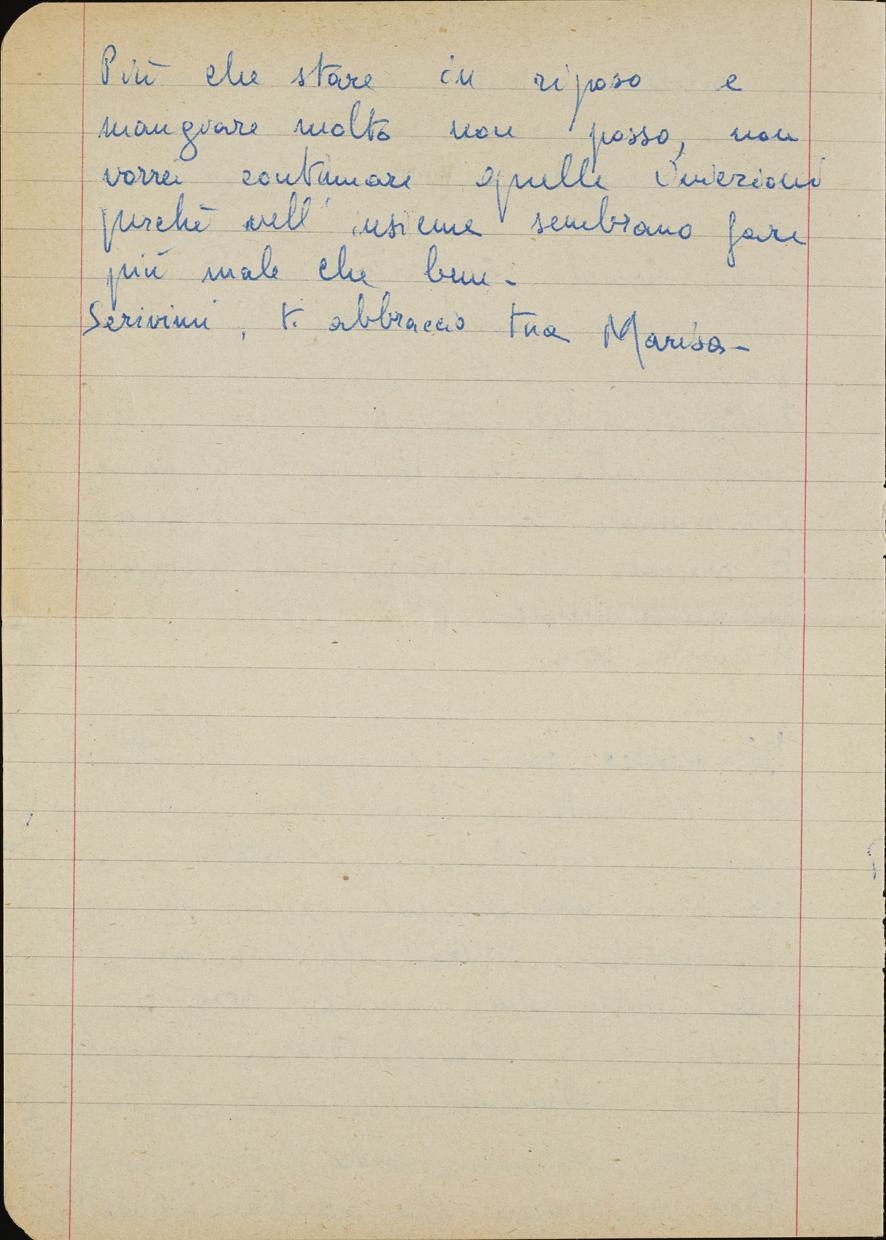 Più che stare in riposo e
mangiare molto non posso, non
vorrei continuare quelle iniezioni
perchè nell'insieme sembrano fare
più male che bene.
Scrivimi, ti abbraccio tua Marisa-